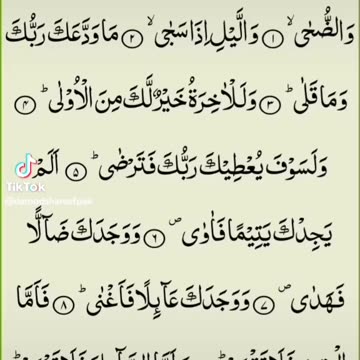 وَالضُّحٰىۙ ۝١ وَالَّيۡلِ اِذَا سَجٰىۙ ۝٢ مَا وَدَّعَكَ رَبُّكَ
وَمَا قَلٰىؕ ۝٣ وَلَلۡاٰخِرَةُ خَيۡرٌ لَّكَ مِنَ الۡاُوۡلٰىؕ ۝٤
وَلَسَوۡفَ يُعۡطِيۡكَ رَبُّكَ فَتَرۡضٰىؕ ۝٥ اَلَمۡ
TikTok
يَجِدۡكَ يَتِيۡمًا فَاٰوٰىۖ ۝٦ وَوَجَدَكَ ضَآلًّا
فَهَدٰىۖ ۝٧ وَوَجَدَكَ عَآئِلًا فَاَغۡنٰىؕ ۝٨ فَاَمَّا